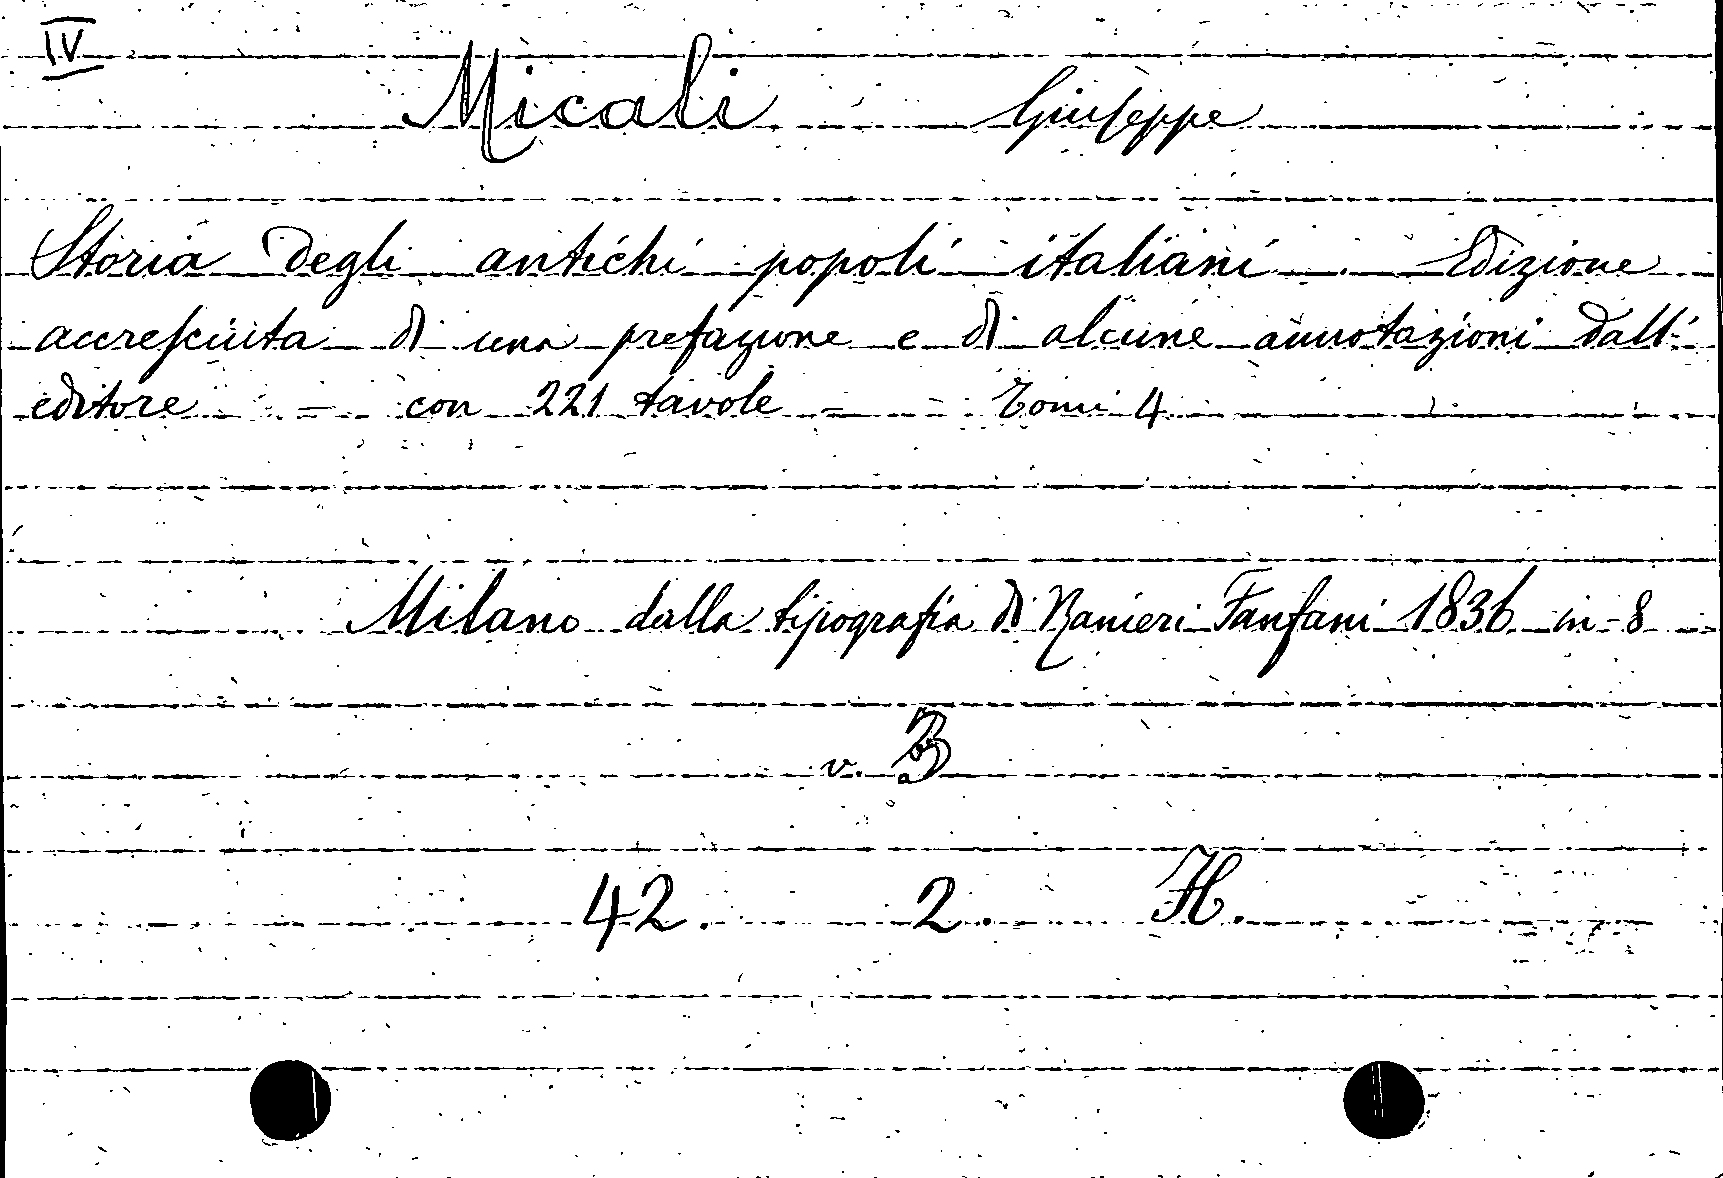 IV
Micali Giuseppe
Storia degli antichi popoli italiani. Edizione
accresciuta di una prefazione e di alcune annotazioni dall'
editore = con 221 tavole = Tomi 4
Milano dalla tipografia di Ranieri Fanfani 1836 in-8
v. 3
42. 2. H.